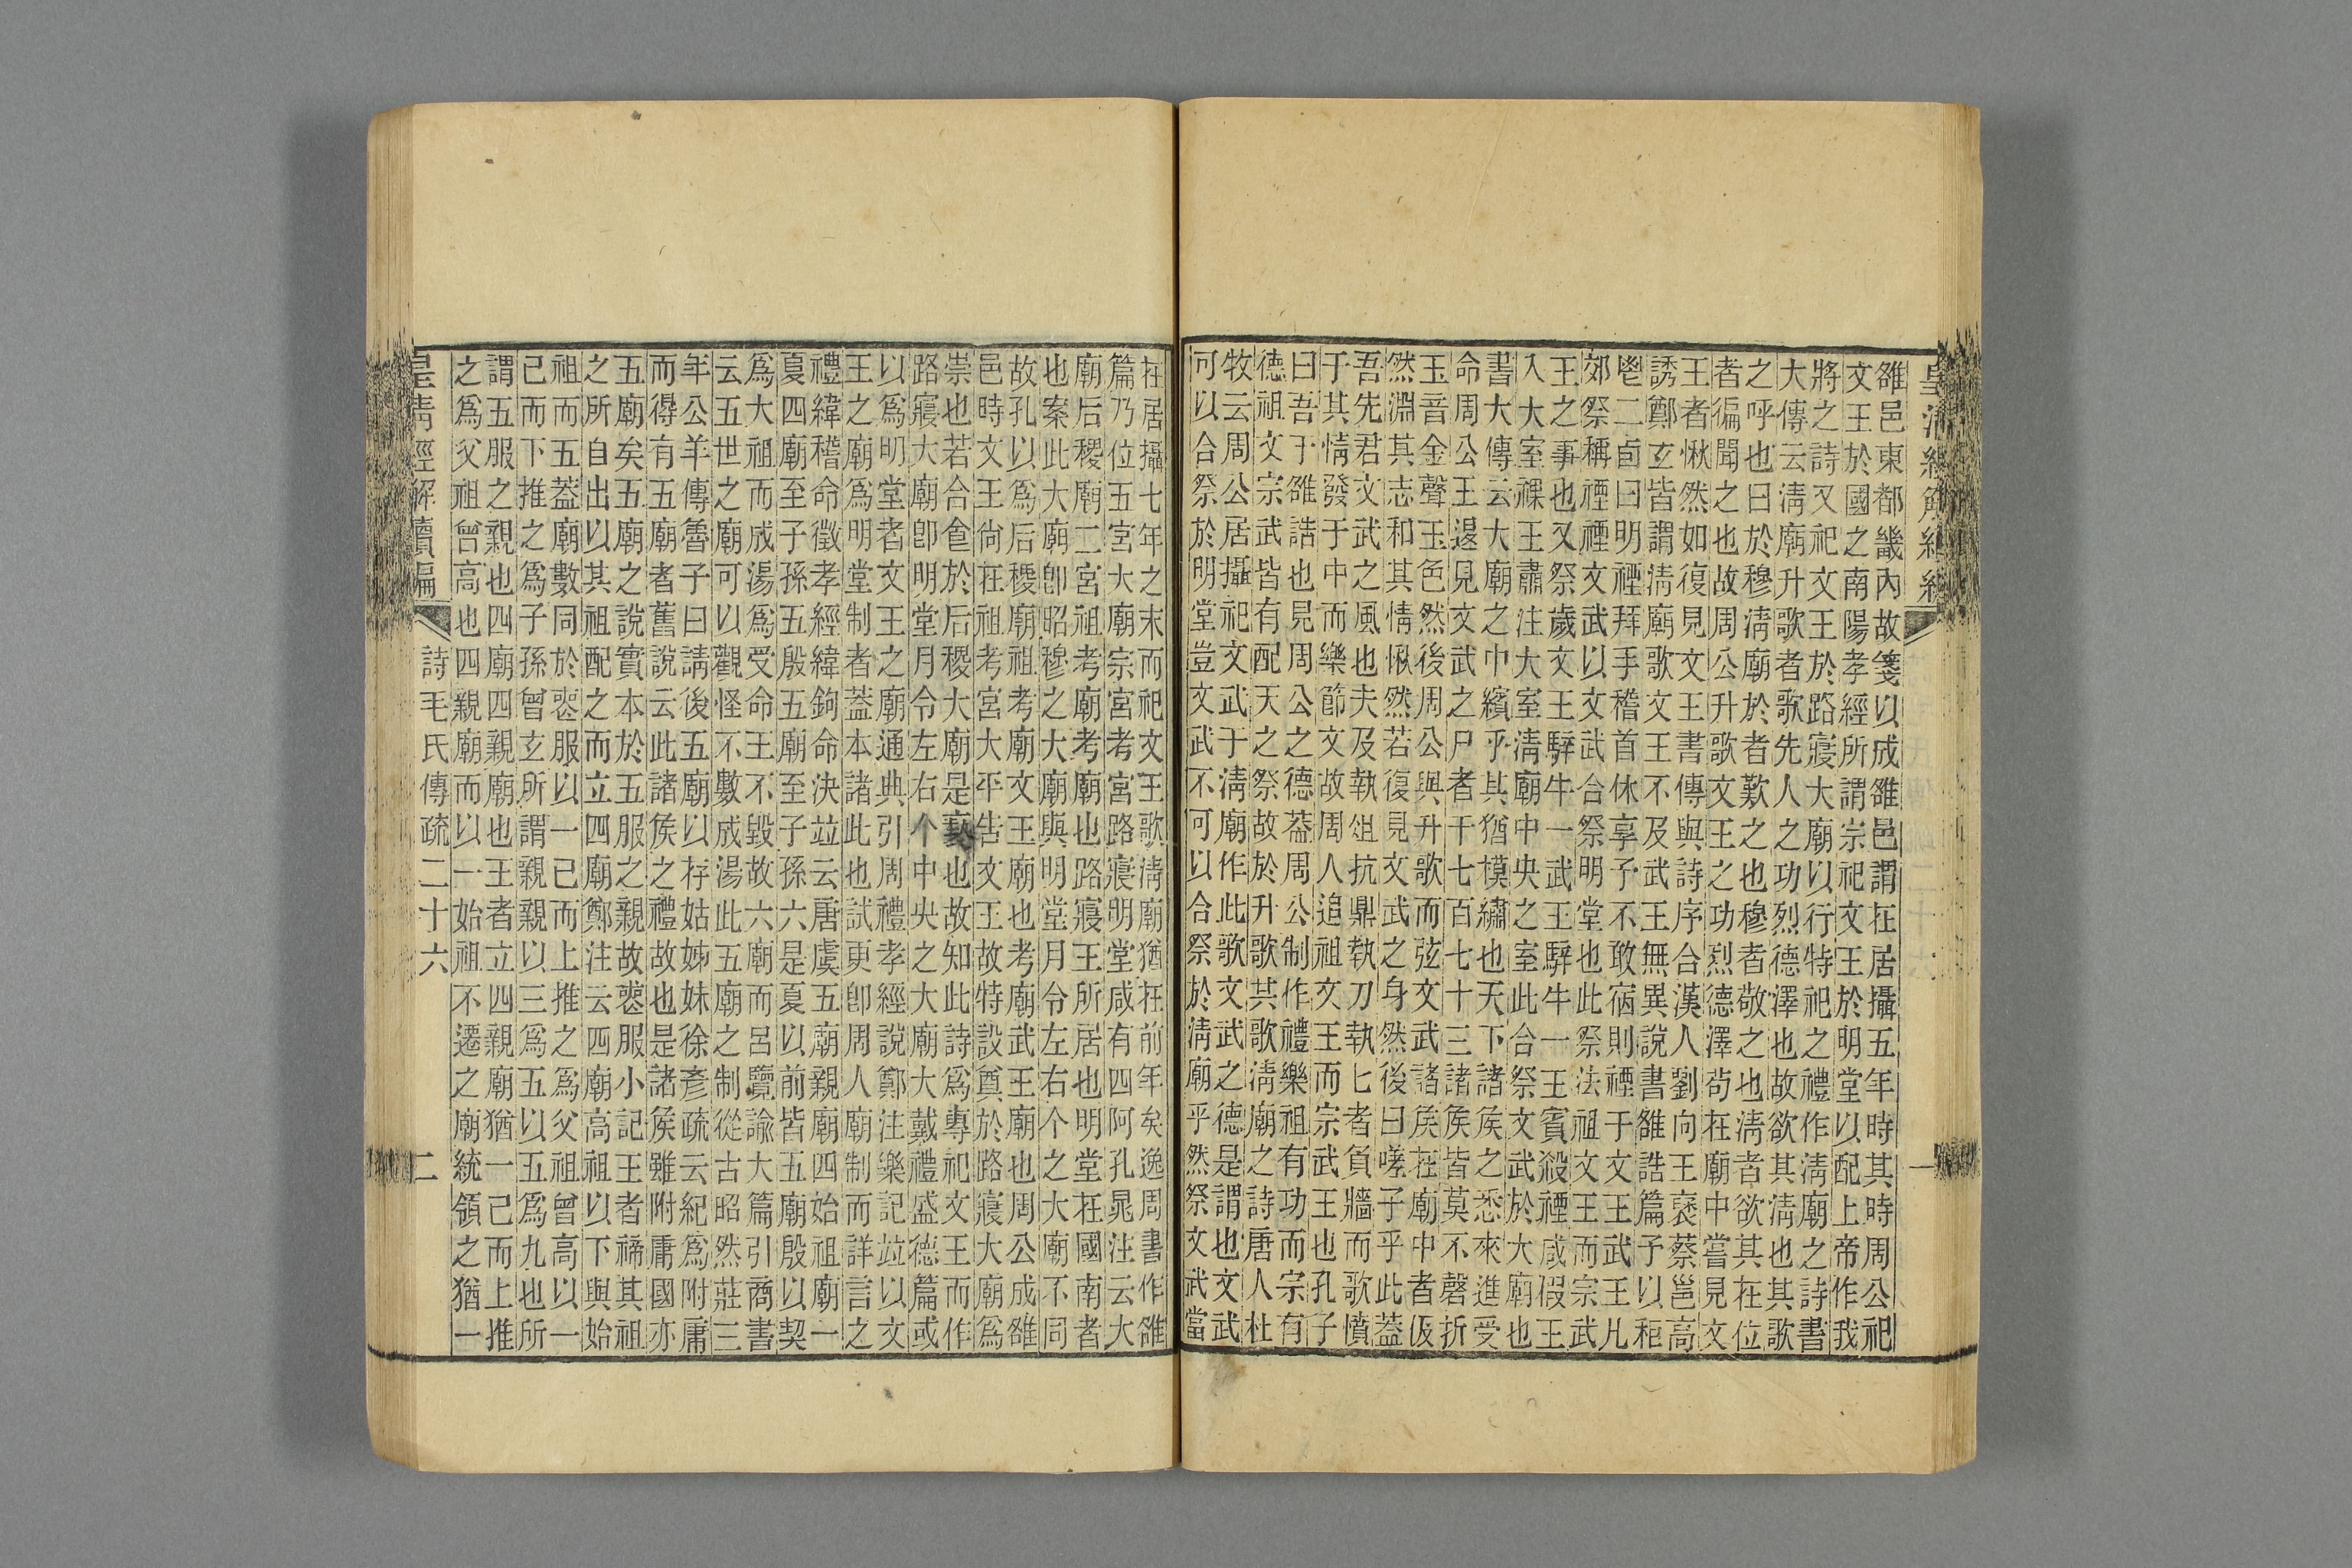 雒邑東都畿內故箋以成雒邑謂在居攝五年時其時周公祀
文王於國之南陽孝經所謂宗祀文王於明堂以配上帝作我
將之詩又祀文王於路寢大廟以行特祀之禮作淸廟之詩書
大傳云淸廟升歌者歌先人之功烈德澤也故欲其淸也其歌
之呼也曰於穆淸廟於者歎之也穆者敬之也淸者欲其在位
者徧聞之也故周公升歌文王之功烈德澤茍在廟中嘗見文
王者愀然如復見文王書傳與詩序合漢人劉向王襃蔡邕高
誘鄭玄皆謂淸廟歌文王不及武王無異說書雒誥篇予以秬
鬯二卣曰明禋拜手稽首休享予不敢宿則禋于文王武王凡
郊祭稱禋禋文武以文武合祭明堂也此祭法祖文王而宗武
王之事也又祭歲文王騂牛一武王騂牛一王賓殺禋咸假王
入大室祼王肅注大室淸廟中央之室此合祭文武於大廟也
書大傳云大廟之中繽乎其猶模繡也天下諸侯之悉來進受
命周公王退見文武之尸者千七百七十三諸侯皆莫不磬折
玉音金聲玉色然後周公與升歌而弦文武諸侯在廟中者伋
然淵其志和其情愀然若復見文武之身然後曰嗟子乎此蓋
吾先君文武之風也夫及執俎抗鼎執刀執匕者負牆而歌憤
于其情發于中而樂節文故周人追祖文王而宗武王也孔子
曰吾于雒誥也見周公之德葢周公制作禮樂祖有功而宗有
德祖文宗武皆有配天之祭故於升歌其歌淸廟之詩唐人杜
牧云周公居攝祀文武于淸廟作此歌文武之德是謂也文武
可以合祭於明堂豈文武不可以合祭於淸廟乎然祭文武當
在居攝七年之末而祀文王歌淸廟猶在前年矣逸周書作雒
篇乃位五宮大廟宗宮考宮路寢明堂咸有四阿孔晁注云大
廟后稷廟二宮祖考廟考廟也路寢王所居也明堂在國南者
也案此大廟卽昭穆之大廟與明堂月令左右个之大廟不同
故孔以爲后稷廟祖考廟文王廟也考廟武王廟也周公成雒
邑時文王尙在祖考宮大平告文王故特設奠於路寢大廟爲
崇也若合食於后稷大廟是褻也故知此詩爲專祀文王而作
路寢大廟卽明堂月令左右个中央之大廟大戴禮盛德篇或
以爲明堂者文王之廟通典引周禮孝經說鄭注樂記竝以文
王之廟爲明堂制者蓋本諸此也試更卽周人廟制而詳言之
禮緯稽命徵孝經緯鉤命決竝云唐虞五廟親廟四始祖廟一
夏四廟至子孫五殷五廟至子孫六是夏以前皆五廟殷以契
爲大祖而成湯爲受命王不毀故六廟而呂覽諭大篇引商書
云五世之廟可以觀怪不數成湯此五廟之制從古昭然莊三
年公羊傳魯子曰請後五廟以存姑姊妹徐彥疏云紀爲附庸
而得有五廟者舊說云此諸侯之禮故也是諸侯雖附庸國亦
五廟矣五廟之說實本於五服之親故喪服小記王者禘其祖
之所自出以其祖配之而立四廟鄭注云四廟高祖以下與始
祖而五葢廟數同於喪服以一已而上推之爲父祖曾高以一
已而下推之爲子孫曾玄所謂親親以三爲五以五爲九也所
謂五服之親也四廟四親廟也王者立四親廟猶一己而上推
之爲父祖曾高也四親廟而以一始祖不遷之廟統領之猶一
皇淸經解續編 詩毛氏傳疏二十六 二